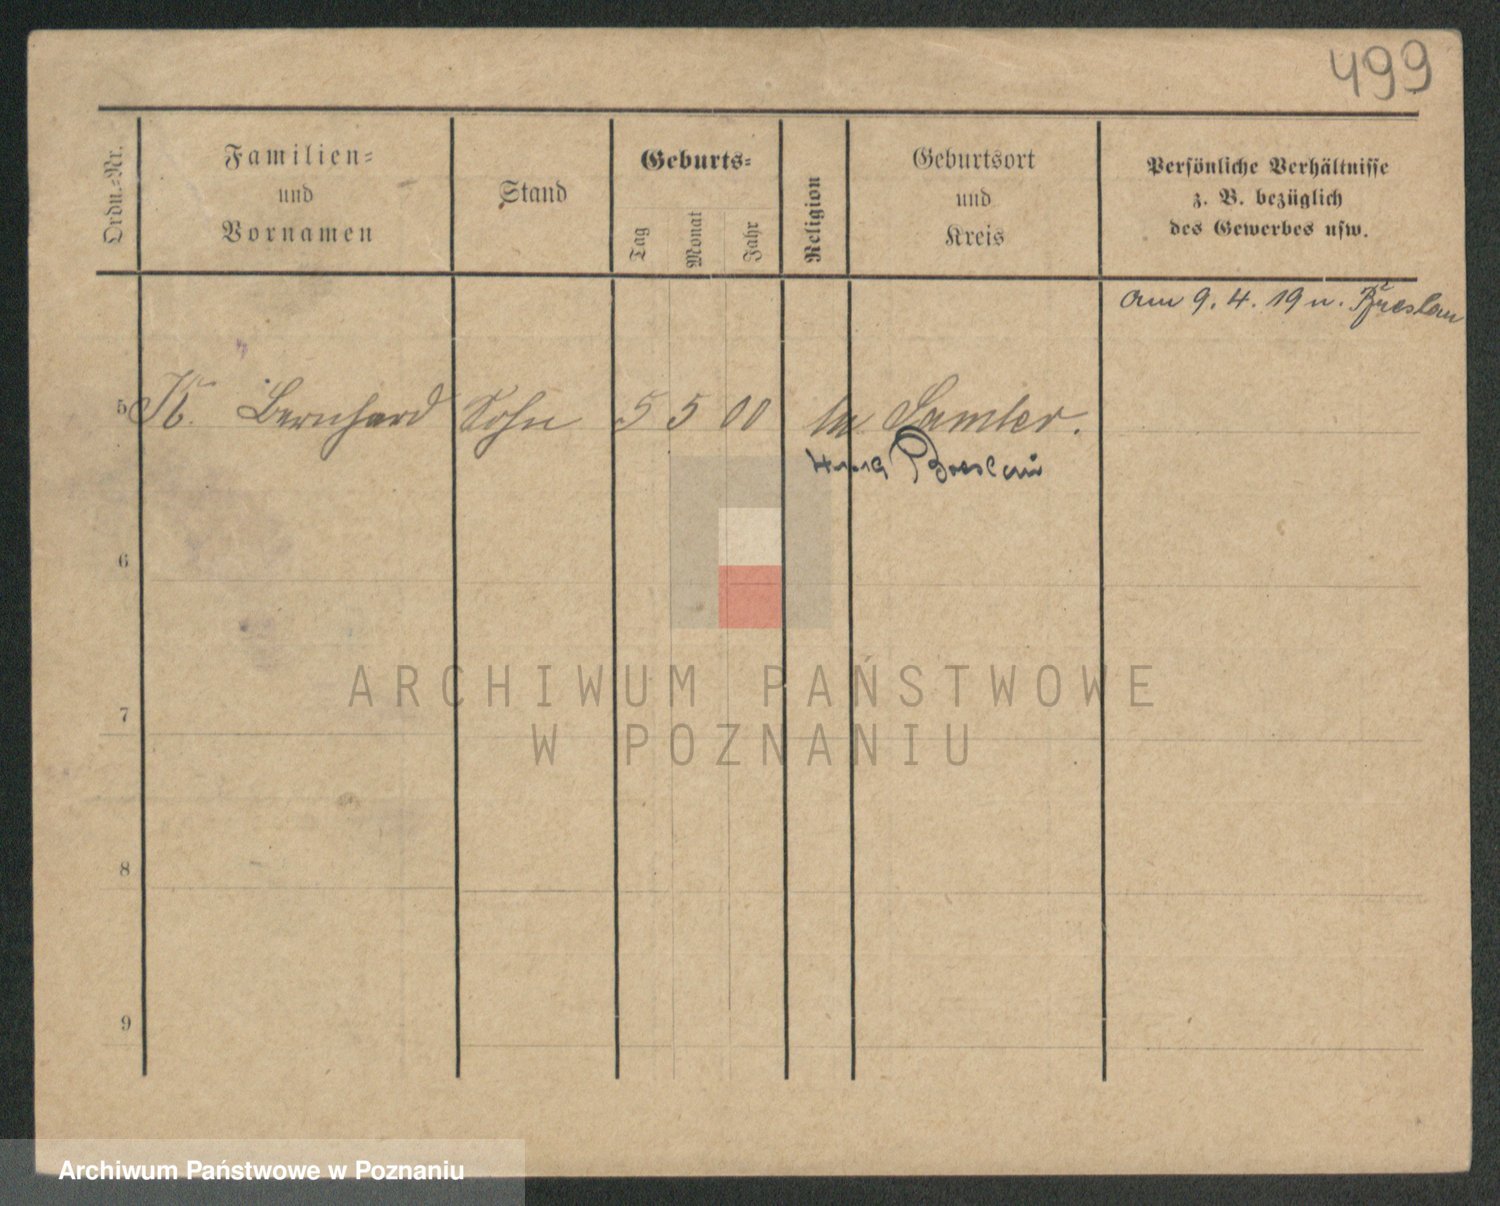 499
Ordn.-Nr.
Familien-
und
Vornamen
Stand
Geburts-
Tag
Monat
Jahr
Religion
Geburtsort
und
Kreis
Persönliche Verhältnisse
z. B. bezüglich
des Gewerbes usw.
am 9. 4. 19 n. Breslau
5 K. Bernhard Sohn 5 5 00 Samter.
Breslau
6
7
8
9
ARCHIWUM PAŃSTWOWE
W POZNANIU
Archiwum Państwowe w Poznaniu